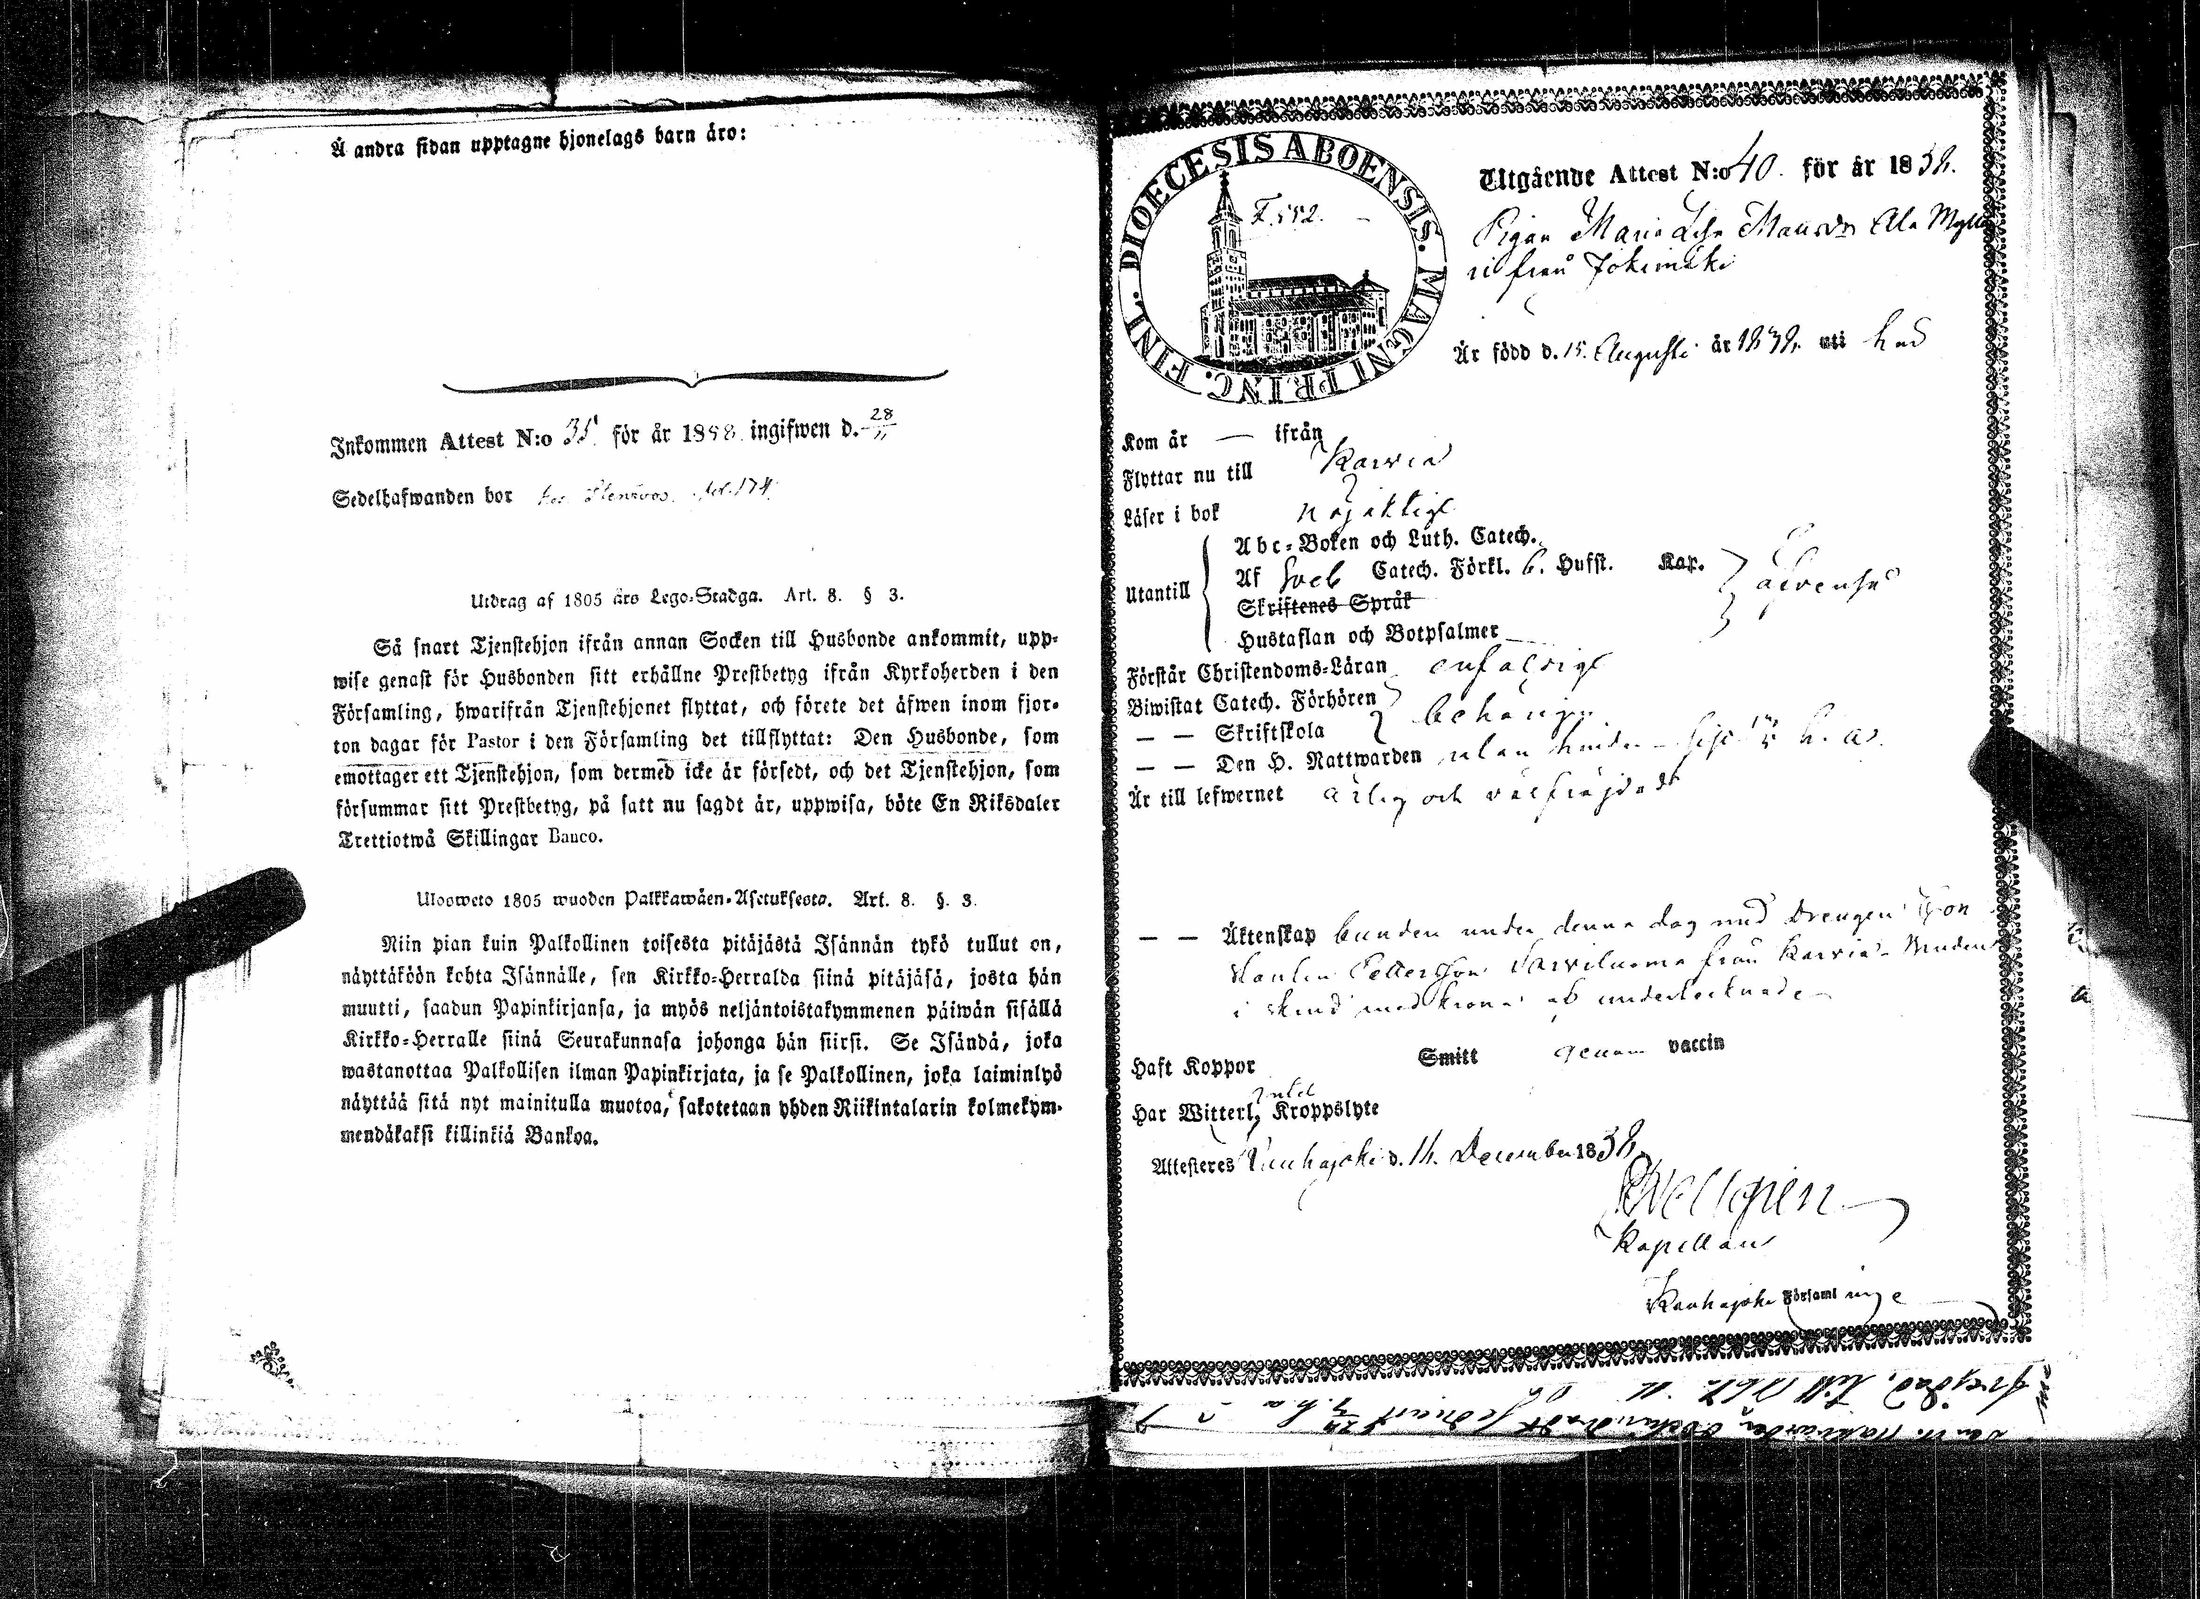 Å andra sidan upptagne hjonelags barn äro:
Inkommen Attest N:o 35 för år 1858 ingifwen d. 28/11
Sedelhafwanden bor hos
Utdrag af 1805 års Lego-Stadga. Art. 8. § 3.
Så snart Tjenstehjon ifrån annan Socken till Husbonde ankommit, upp-
wise genast för Husbonden sitt erhållne Prestbetyg ifrån Kyrkoherden i den
Församling, hwarifrån Tjenstehjonet flyttat, och förete det äfwen inom fjor-
ton dagar för Pastor i den Församling det tillflyttat: Den Husbonde, som
emottager ett Tjenstehjon, som dermed icke är försedt, och det Tjenstehjon, som
försummar sitt Prestbetyg, på satt nu sagdt är, uppwisa, böte En Riksdaler
Trettiotwå Skillingar Banco.
Ulosweto 1805 wuoden Palkkawäen-Asetuksesta. Art. 8. §. 3.
Niin pian kuin Palkollinen toisesta pitäjästä Isännän tykö tullut on,
näyttäköön kohta Isännälle, sen Kirkko-Herralda siinä pitäjäsä, josta hän
muutti, saadun Papinkirjansa, ja myös neljäntoistakymmenen päiwän sisällä
Kirkko-Herralle siinä Seurakunnasa johonga hän siirsi. Se Isändä, joka
wastanottaa Palkollisen ilman Papinkirjata, ja se Palkollinen, joka laiminlyö
näyttää sitä nyt mainitulla muotoa, sakotetaan yhden Riikintalarin kolmekym-
mendäkaksi killinkiä Bankoa.
DIOECESIS ABOENSIS. MAGNI PRINC. FINL.
Utgående Attest N:o 40. för år 1858.
Pigan Maria Lisa Mansdr Ala Mylly
från Jokimäki
Är född d. 15. Augusti år 1838. uti här
Kom år — ifrån
Flyttar nu till Karvia
Läser i bok nöjaktigt
Utantill
Abc-Boken och Luth. Catech.
Af Sveb Catech. Förkl. 6. Hufst. Kap.
Skriftenes Språk
Hustaflan och Botpsalmer
Förstår Christendoms-Läran enfaldigt
Biwistat Catech. Förhören
— — Skriftskola behörigen
— — Den H. Nattwarden utan h. a.
Är till lefwernet ärlig och välfräjdad
— — Äktenskap bunden under denna dag med Drengen
Pettersson från Karvia.
i med af undertecknade
Haft Koppor Smitt genom vaccin
Har Witterl. Kroppslyte
Attesteres Kauhajoki d. 14. December 1858.
Kapellan
Kauhajoki Församlinge